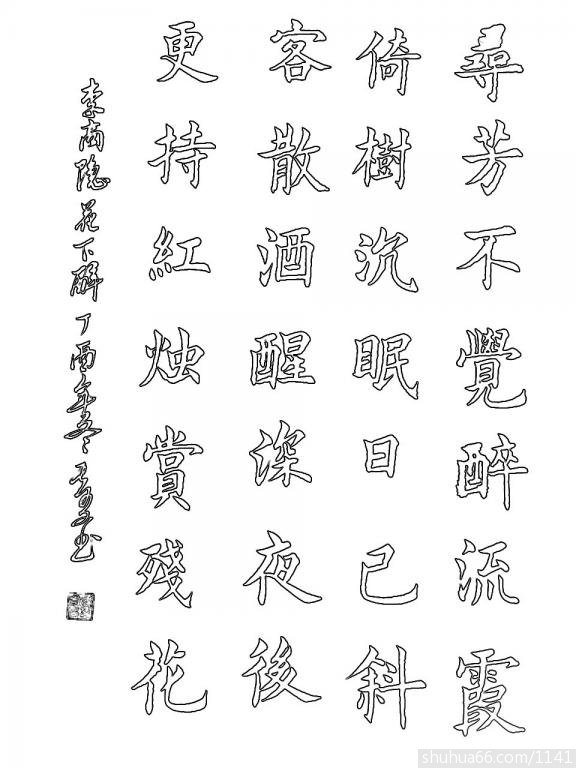 尋芳不覺醉流霞
倚樹沉眠日已斜
客散酒醒深夜後
更持紅烛賞殘花
李商隐 花下醉 丁酉年冬
shuhua66.com/1141